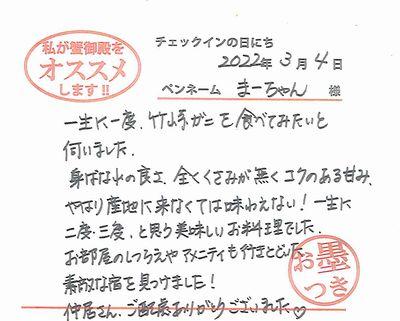 私が蟹御殿を
オススメ
します!!
チェックインの日にち
2022年 3月 4日
ペンネーム まーちゃん 様
一生に一度、竹崎ガニを食べてみたいと
伺いました。
身ばなれの良さ、全くくさみが無くコクのある甘み、
やはり産地に来なくては味わえない!一生に
二度・三度、と思う美味しいお料理でした。
お部屋のしつらえやアメニティも行きとどいた
素敵な宿を見つけました!
仲居さん、ご配慮ありがとうございました♡
お墨
つき